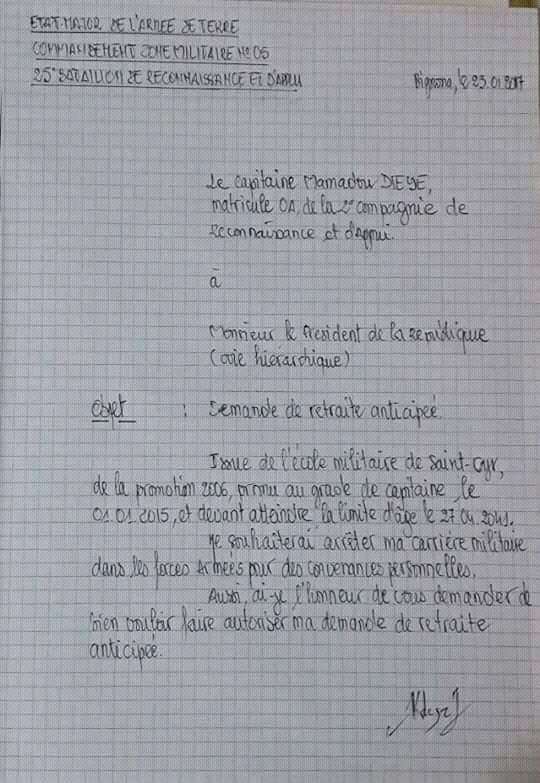 ETAT-MAJOR DE L'ARMEE DE TERRE
COMMANDEMENT ZONE MILITAIRE N° 05
25° BATAILLON DE RECONNAISSANCE ET D'APPUI
Bignona, le 23.01.2017
Le capitaine Mamadou DIEYE,
matricule OA, de la 2e compagnie de
reconnaissance et d'Appui.
à
Monsieur le Président de la République
(voie hiérarchique)
Objet : Demande de retraite anticipée.
Issue de l'école militaire de Saint-Cyr,
de la promotion 2006, promu au grade de capitaine, le
01.01.2015, et devant atteindre la limite d'âge le 27.04.2041.
Je souhaiterai arrêter ma carrière militaire
dans les forces Armées pour des convenances personnelles.
Aussi, ai-je l'honneur de vous demander de
bien vouloir faire autoriser ma demande de retraite
anticipée.